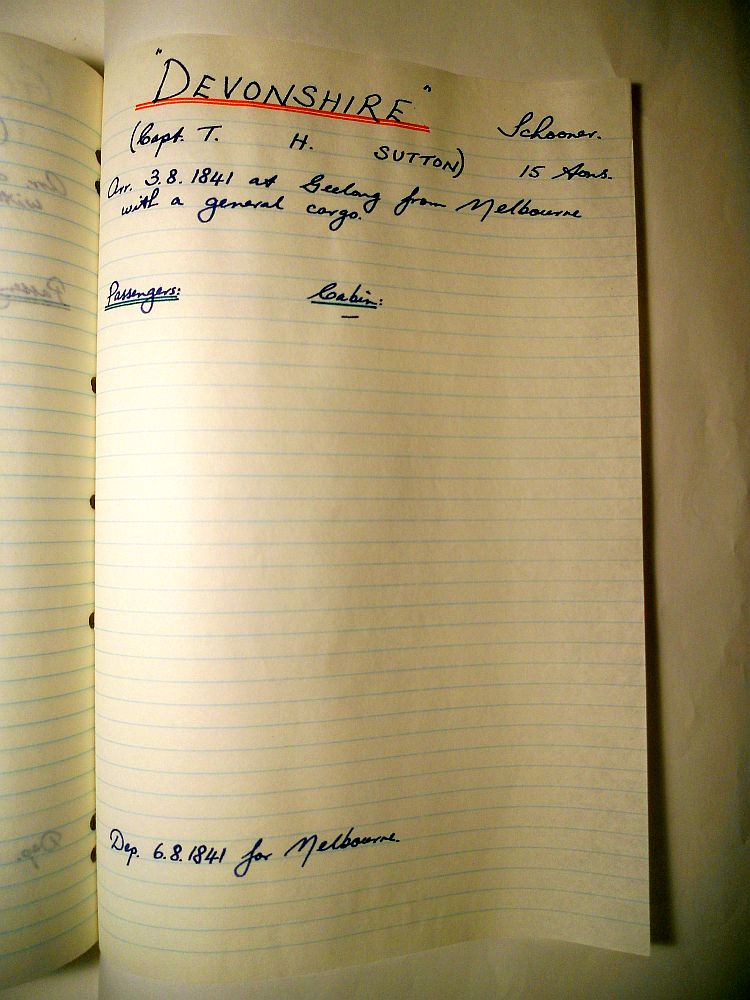 "DEVONSHIRE" Schooner.
(Capt. T. H. SUTTON) 15 tons.
Arr. 3.8.1841 at Geelong from Melbourne
with a general cargo.
Passengers: Cabin:
—
Dep. 6.8.1841 for Melbourne.